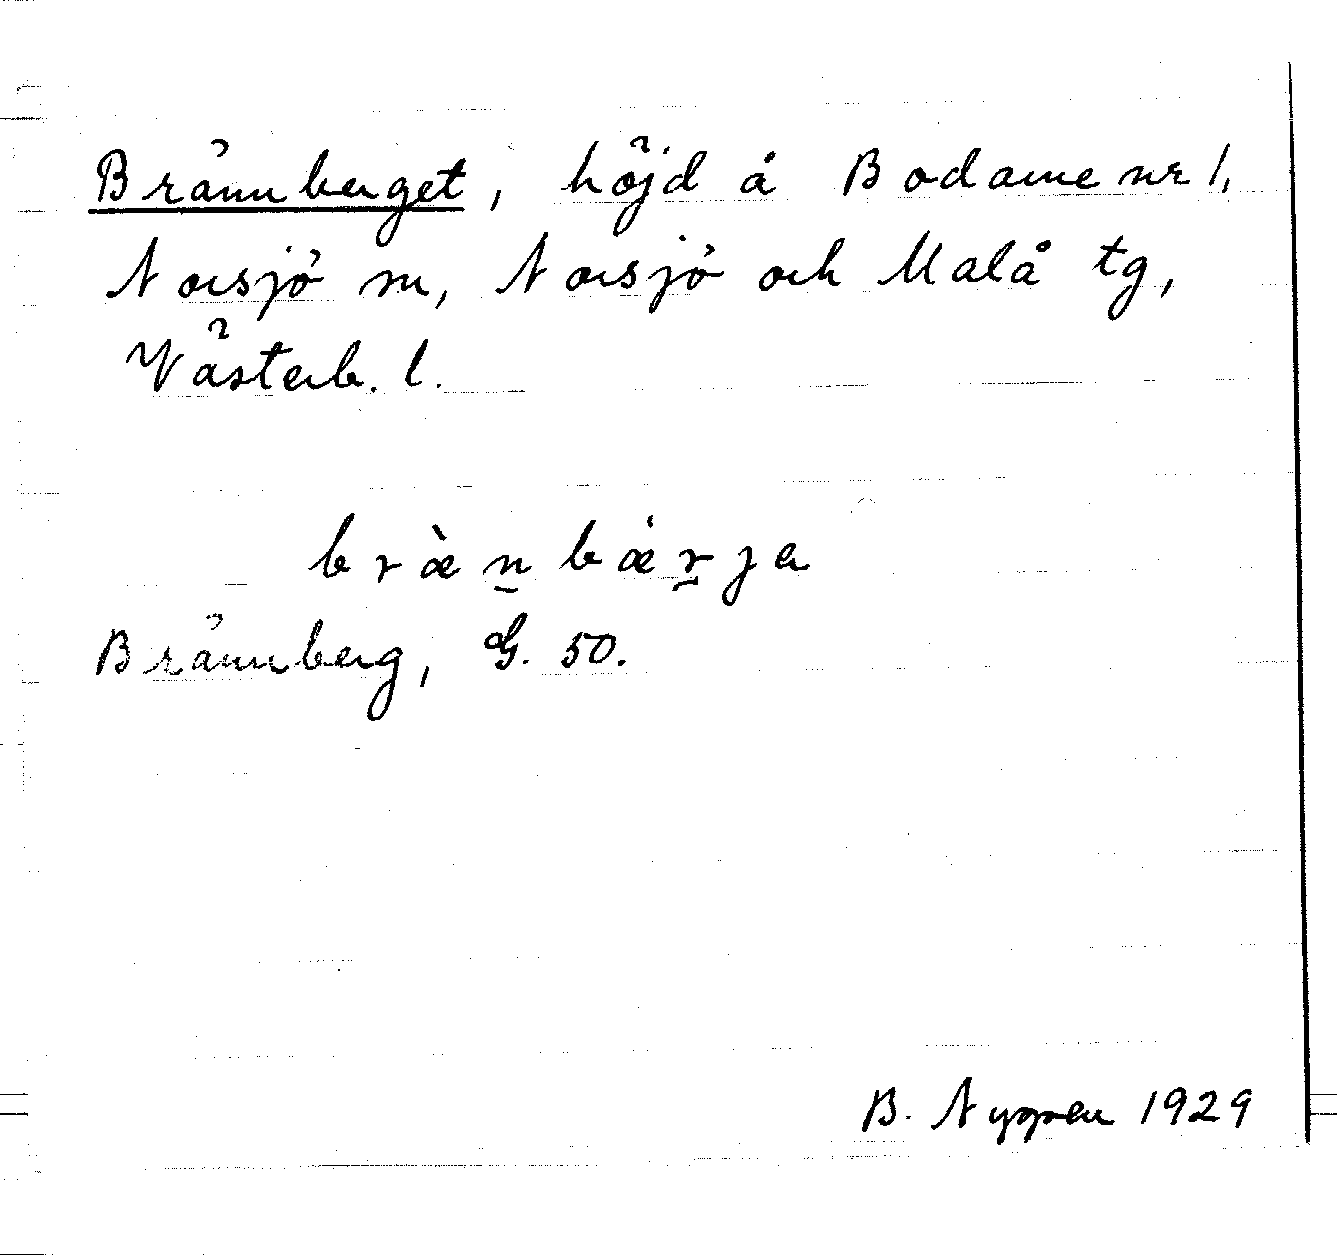 Brännberget, höjd å Bodarne nr 1,
Norsjö sn, Norsjö och Malå tg,
Västerb. l.
bræ̀n̠bǽr̠ja
Brännberg, G. 50.
B. Nyppen 1929